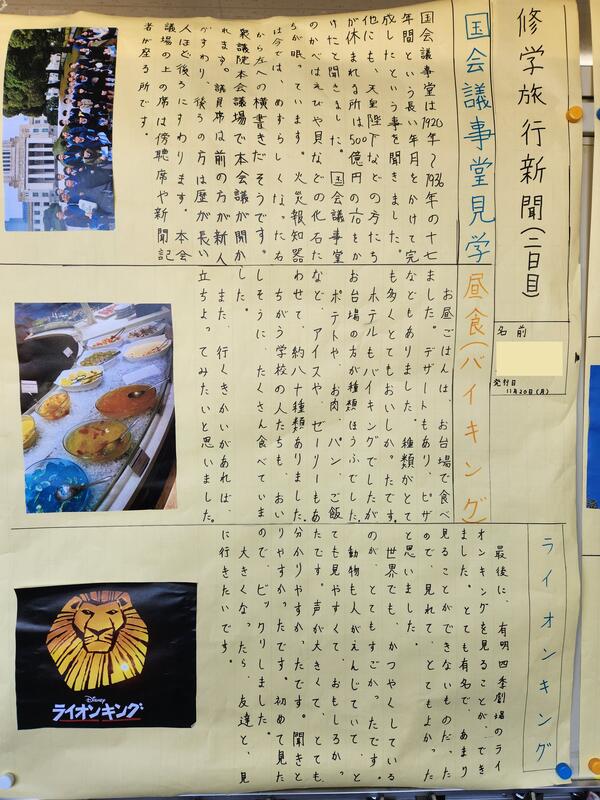 修学旅行新聞(二日目)
名前
発行日
11月20日(月)
国会議事堂見学
国会議事堂は1920年〜1936年の十七
年間という長い年月をかけて完
成したという事を聞きました。
他にも、天皇陛下などの方たち
が休まれる所は500億円の金をか
けたと聞きました。国会議事堂
のかべはえびや貝などの化石た
ちが眠っています。火災報知器
は今では、めずらしくなった右
から左への横書きだそうです。
衆議院本会議場で本会議が開か
れます。議員席は前の方が新人
がすわり、後ろの方は歴が長い
人ほど後ろにすわります。本会
議場の上の席は傍聴席や新聞記
者が座る所です。
昼食(バイキング)
お昼ごはんは、お台場で食べ
ました。デザートもあり、ピザ
などもありました。種類がとて
も多くとてもおいしかったです。
ホテルもバイキングでしたが
お台場の方が種類ほうふでした。
ポテトや、お肉、パン、ご飯
など、アイスや、ゼーリーもあ
わせて、約八十種類ありました。
ちがう学校の人たちも、おい
しそうに、たくさん食べていま
した。
また、行くきかいがあれば、
立ちよってみたいと思いました。
ライオンキング
最後に、有明四季劇場のライ
オンキングを見ることが、でき
ました。とても有名で、あまり
見ることができないものだった
ので、見れて、とてもよかった
と思いました。
世界でも、かつやくしている
のが、とてもすごかったです。
動物も人がえんじていて、と
ても見やすくて、おもしろかっ
たです。声が大きくて、とても
分かりやすかったです。聞きと
りやすかったです。初めて見た
ので、ビックリしました。
大きくなったら、友達と、見
に行きたいです。
Disney
ライオンキング